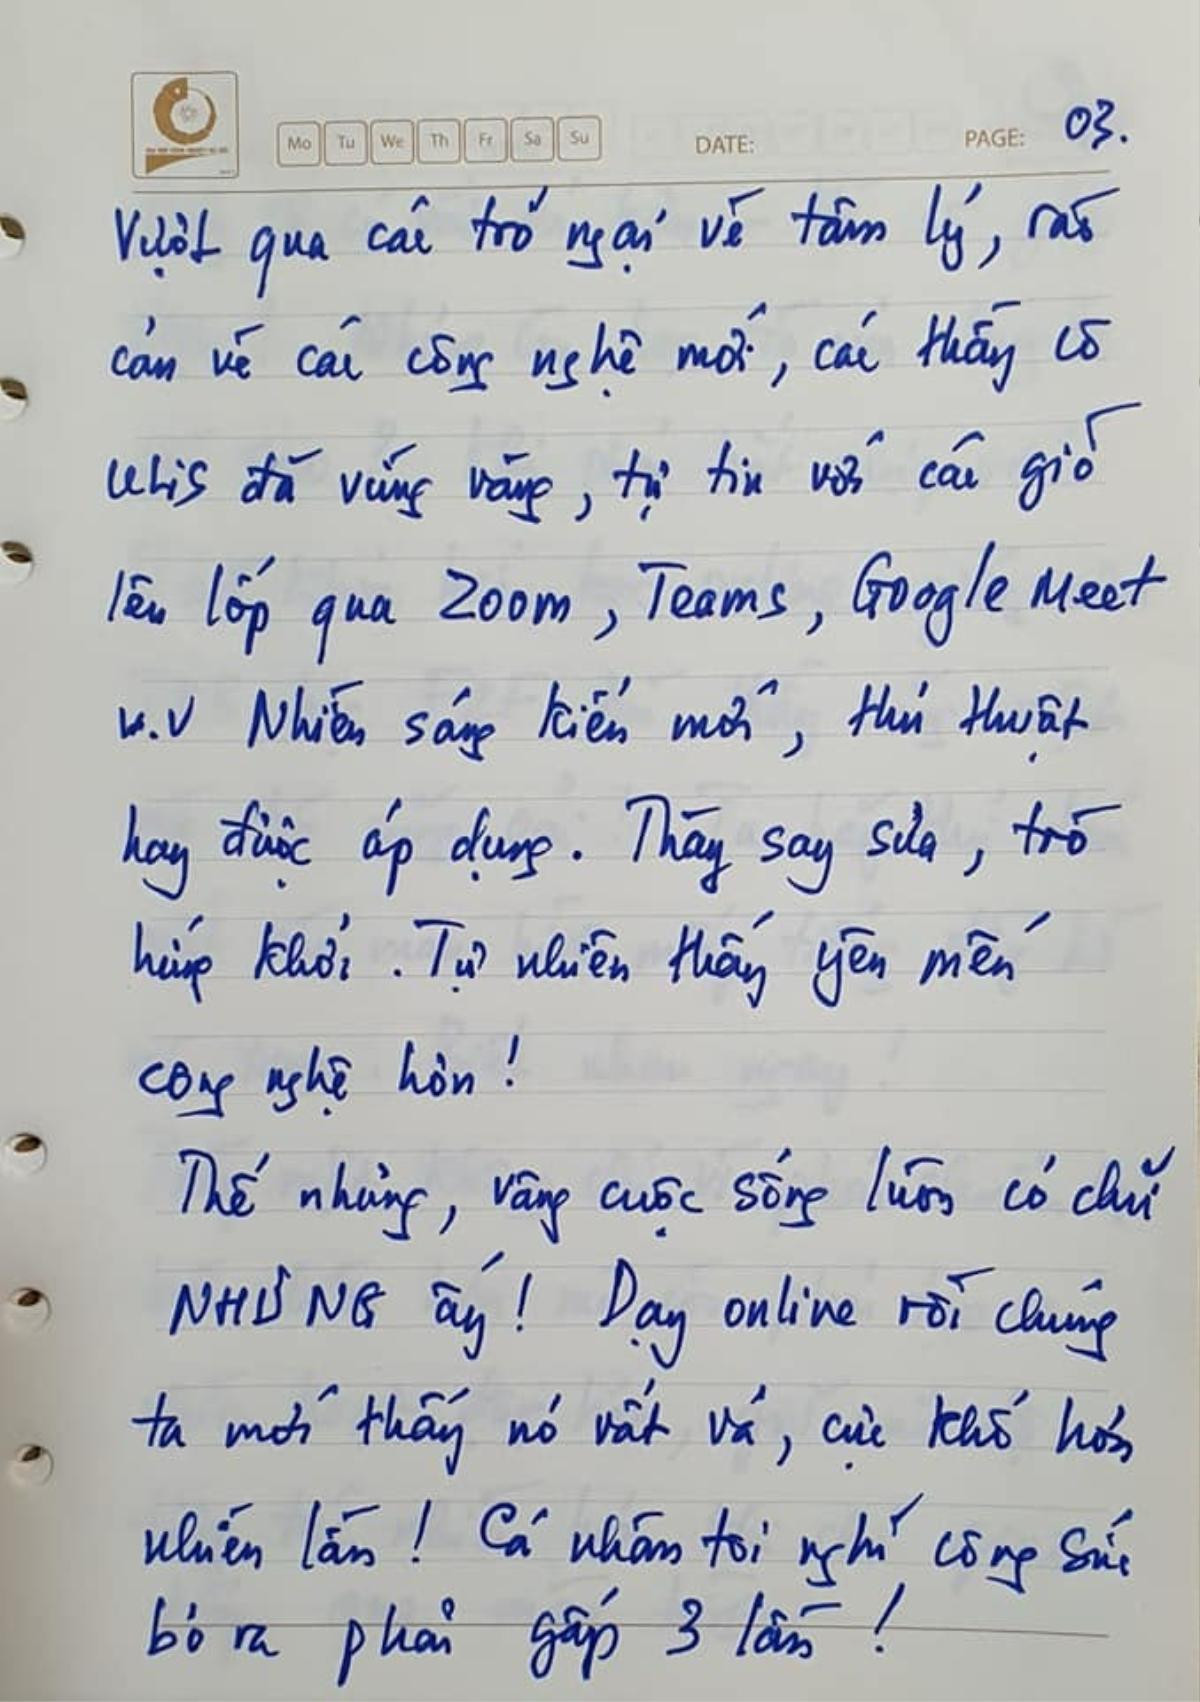 Mo Tu We Th Fr Sa Su DATE: PAGE: 03.
Vượt qua các trở ngại về tâm lý, rào
cản về các công nghệ mới, các thầy cô
ULIS đã vững vàng, tự tin với các giờ
lên lớp qua Zoom, Teams, Google Meet
v.v Nhiều sáng kiến mới, thủ thuật
hay được áp dụng. Thầy say sưa, trò
hứng khởi. Tự nhiên thấy yêu mến
công nghệ hơn!
Thế nhưng, vâng cuộc sống luôn có chữ
NHƯNG ấy! Dạy online rồi chúng
ta mới thấy nó vất vả, cực khổ hơn
nhiều lần! Cá nhân tôi nghĩ công sức
bỏ ra phải gấp 3 lần!